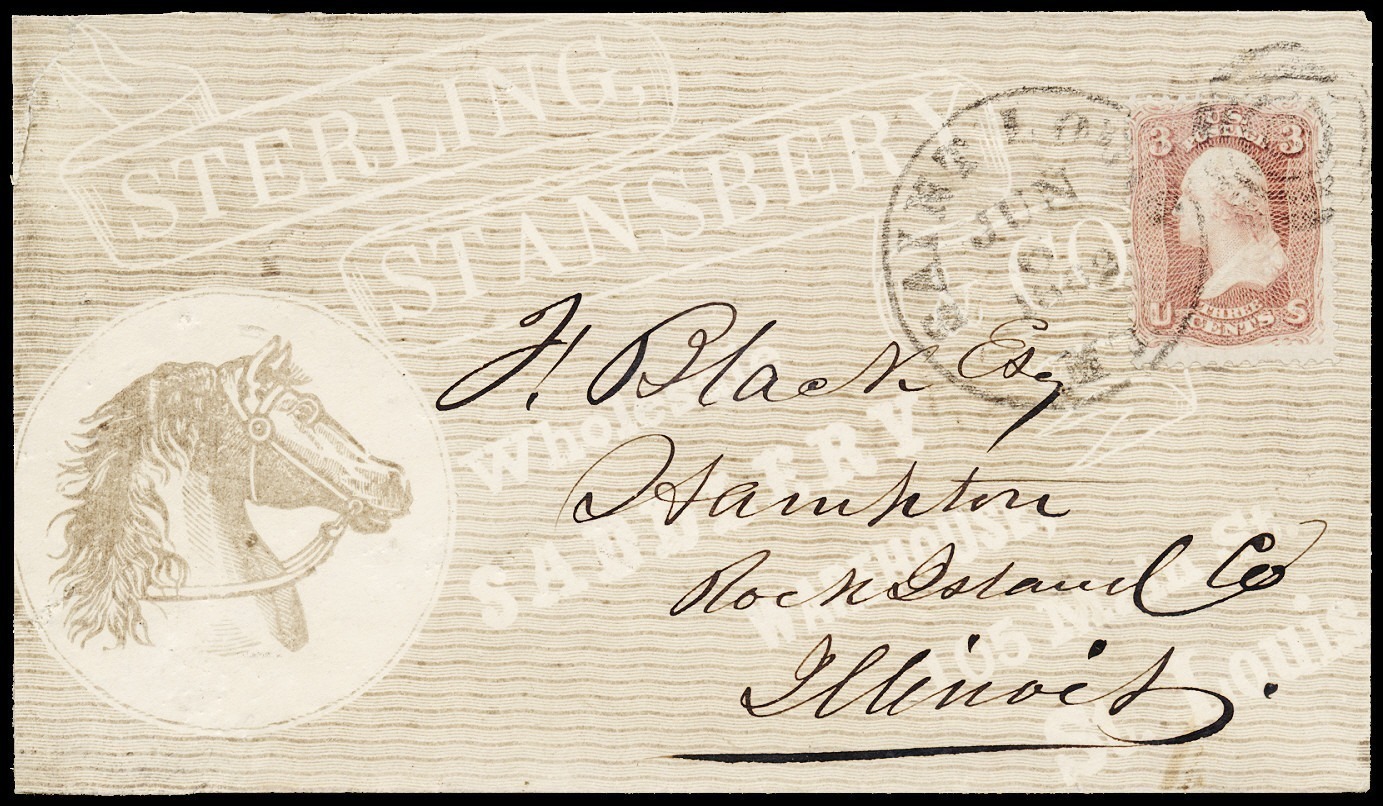 STERLING,
STANSBERY
& CO
Wholesale
SADDLERY
WAREHOUSE,
165 Main St.
St. Louis
SAINT LOU
JUN
1862
MO
U.S. POSTAGE
3 3
U THREE CENTS S
F. Black Esq
Hampton
Rock Island Co
Illinois.